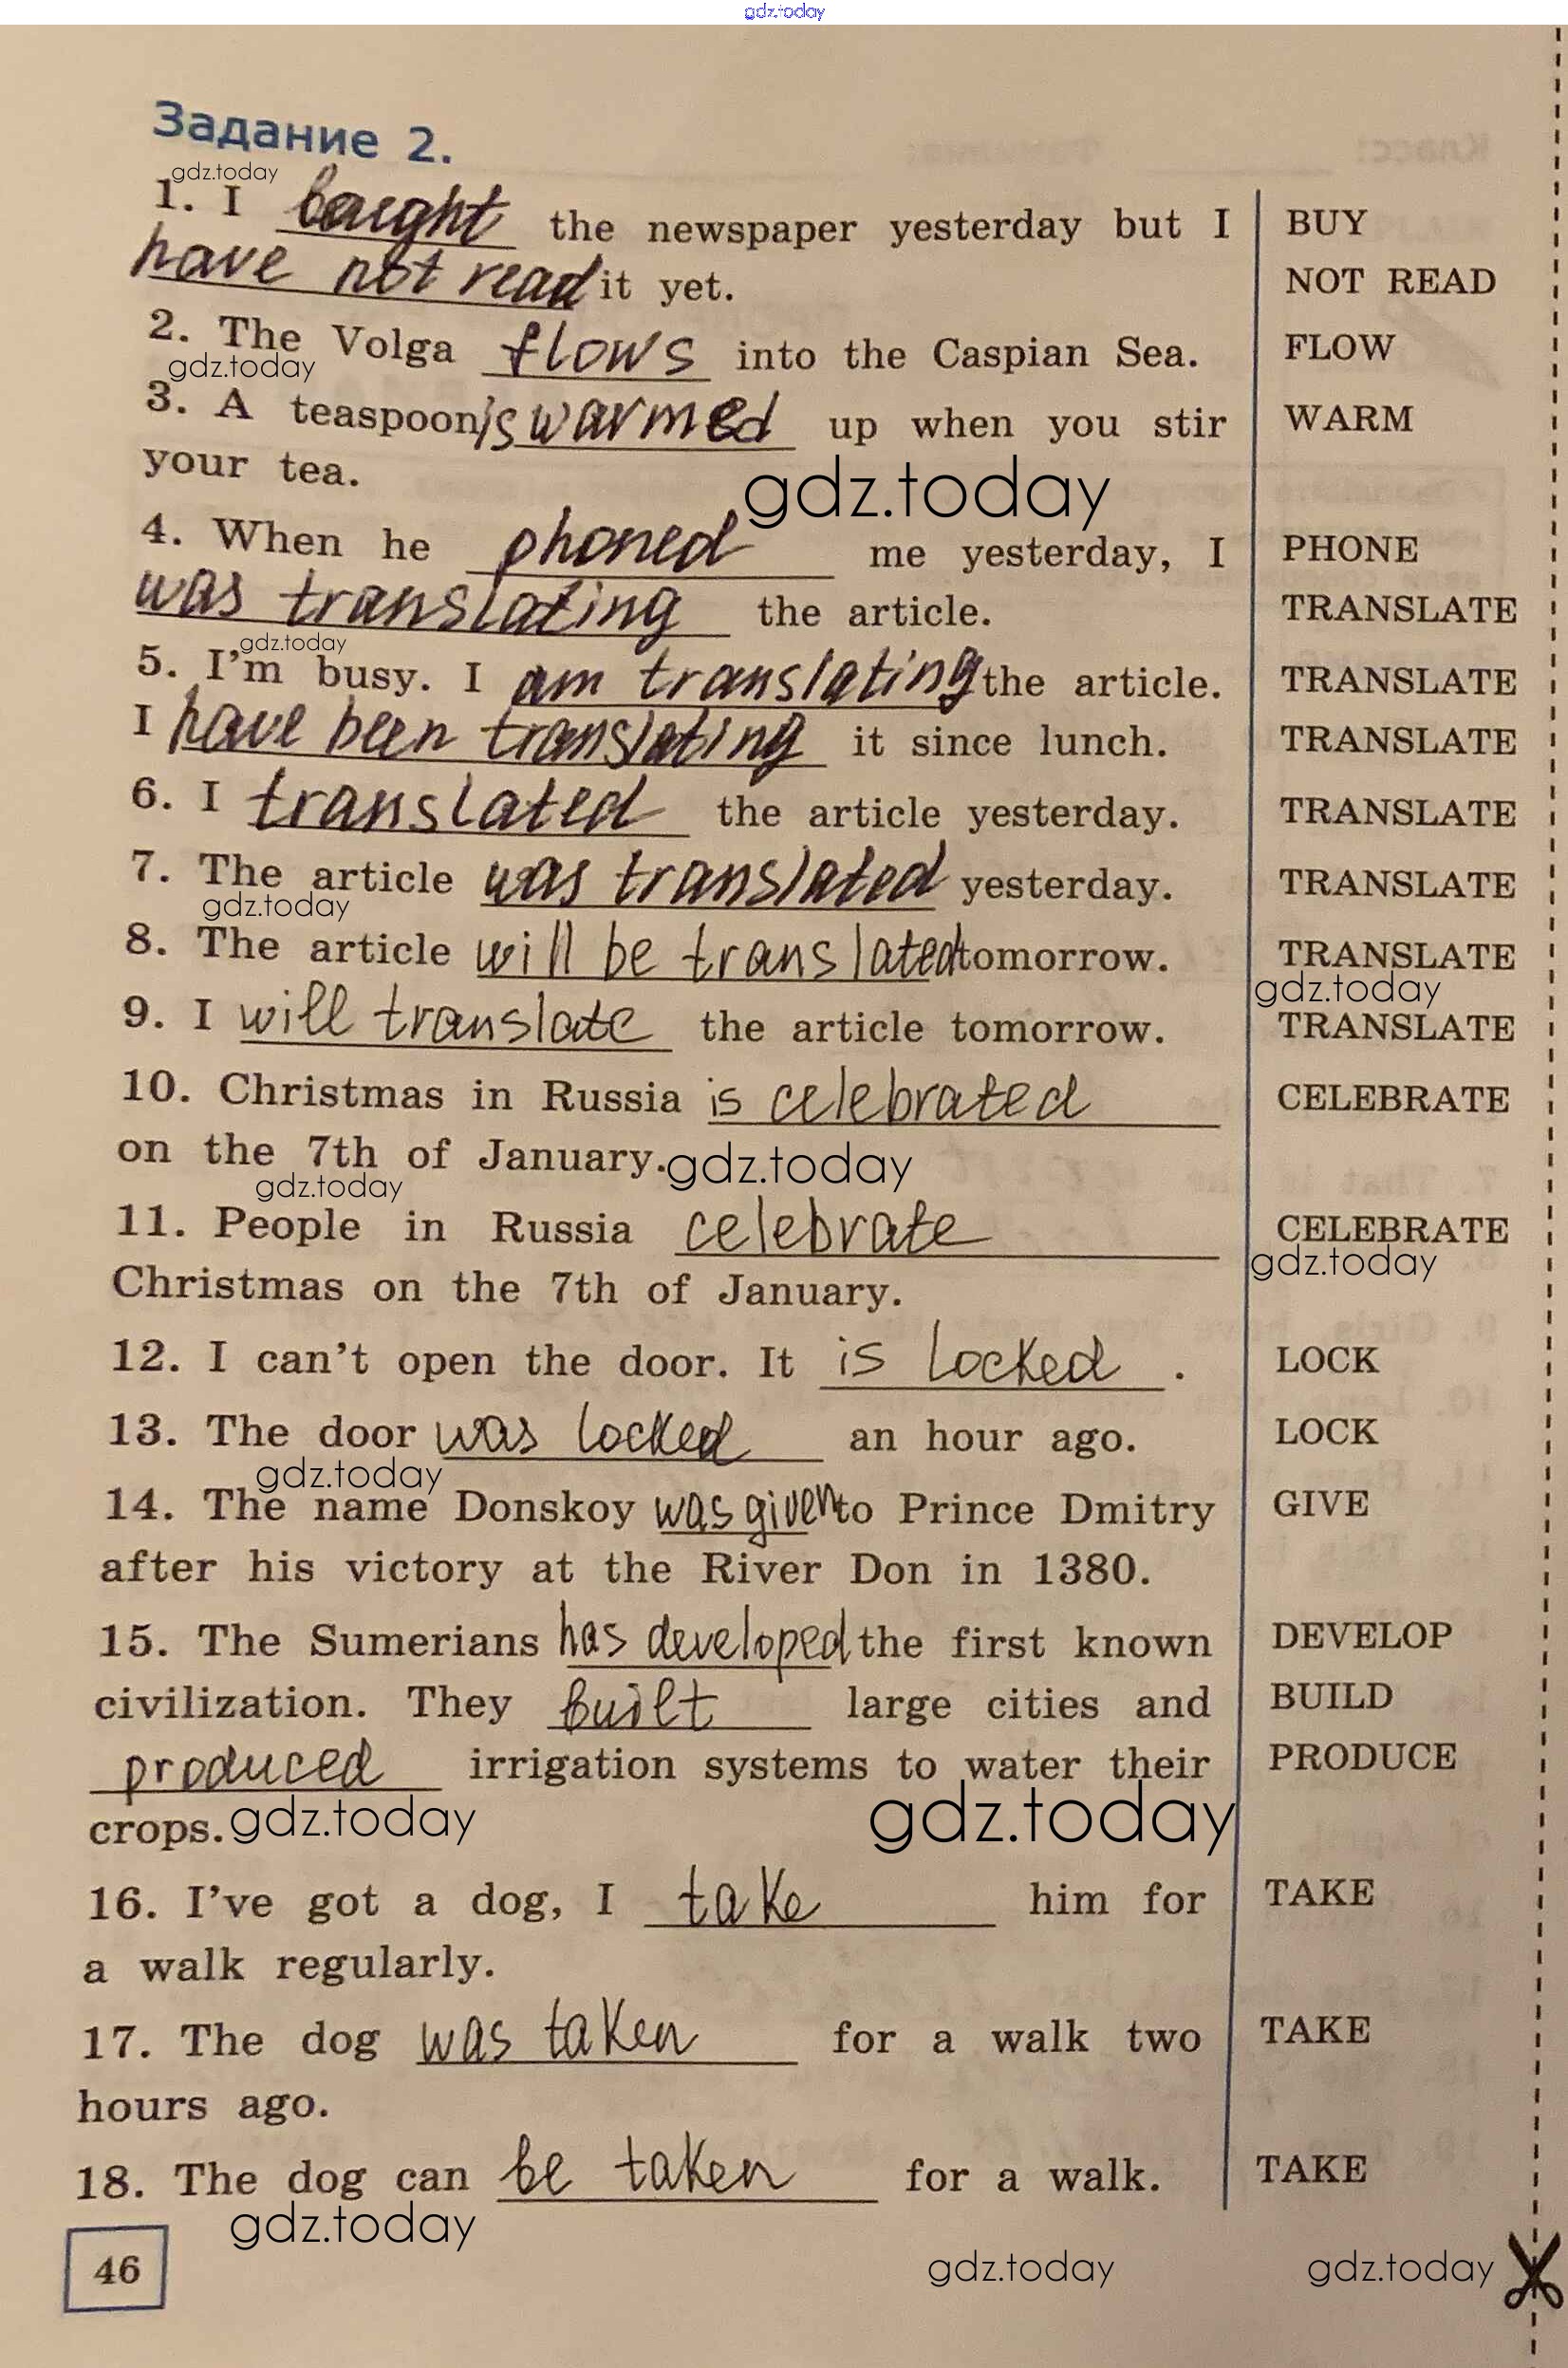 gdz.today
Задание 2.
gdz.today
1. I bought the newspaper yesterday but I BUY
have not read it yet. NOT READ
2. The Volga flows into the Caspian Sea. FLOW
gdz.today
3. A teaspoon is warmed up when you stir WARM
your tea.
gdz.today
4. When he phoned me yesterday, I PHONE
was translating the article. TRANSLATE
gdz.today
5. I'm busy. I am translating the article. TRANSLATE
I have been translating it since lunch. TRANSLATE
6. I translated the article yesterday. TRANSLATE
7. The article was translated yesterday. TRANSLATE
gdz.today
8. The article will be translated tomorrow. TRANSLATE
gdz.today
9. I will translate the article tomorrow. TRANSLATE
10. Christmas in Russia is celebrated CELEBRATE
on the 7th of January. gdz.today
gdz.today
11. People in Russia celebrate CELEBRATE
gdz.today
Christmas on the 7th of January.
12. I can't open the door. It is locked. LOCK
13. The door was locked an hour ago. LOCK
gdz.today
14. The name Donskoy was given to Prince Dmitry GIVE
after his victory at the River Don in 1380.
15. The Sumerians has developed the first known DEVELOP
civilization. They built large cities and BUILD
produced irrigation systems to water their PRODUCE
crops. gdz.today gdz.today
16. I've got a dog, I take him for TAKE
a walk regularly.
17. The dog was taken for a walk two TAKE
hours ago.
18. The dog can be taken for a walk. TAKE
gdz.today
46 gdz.today gdz.today